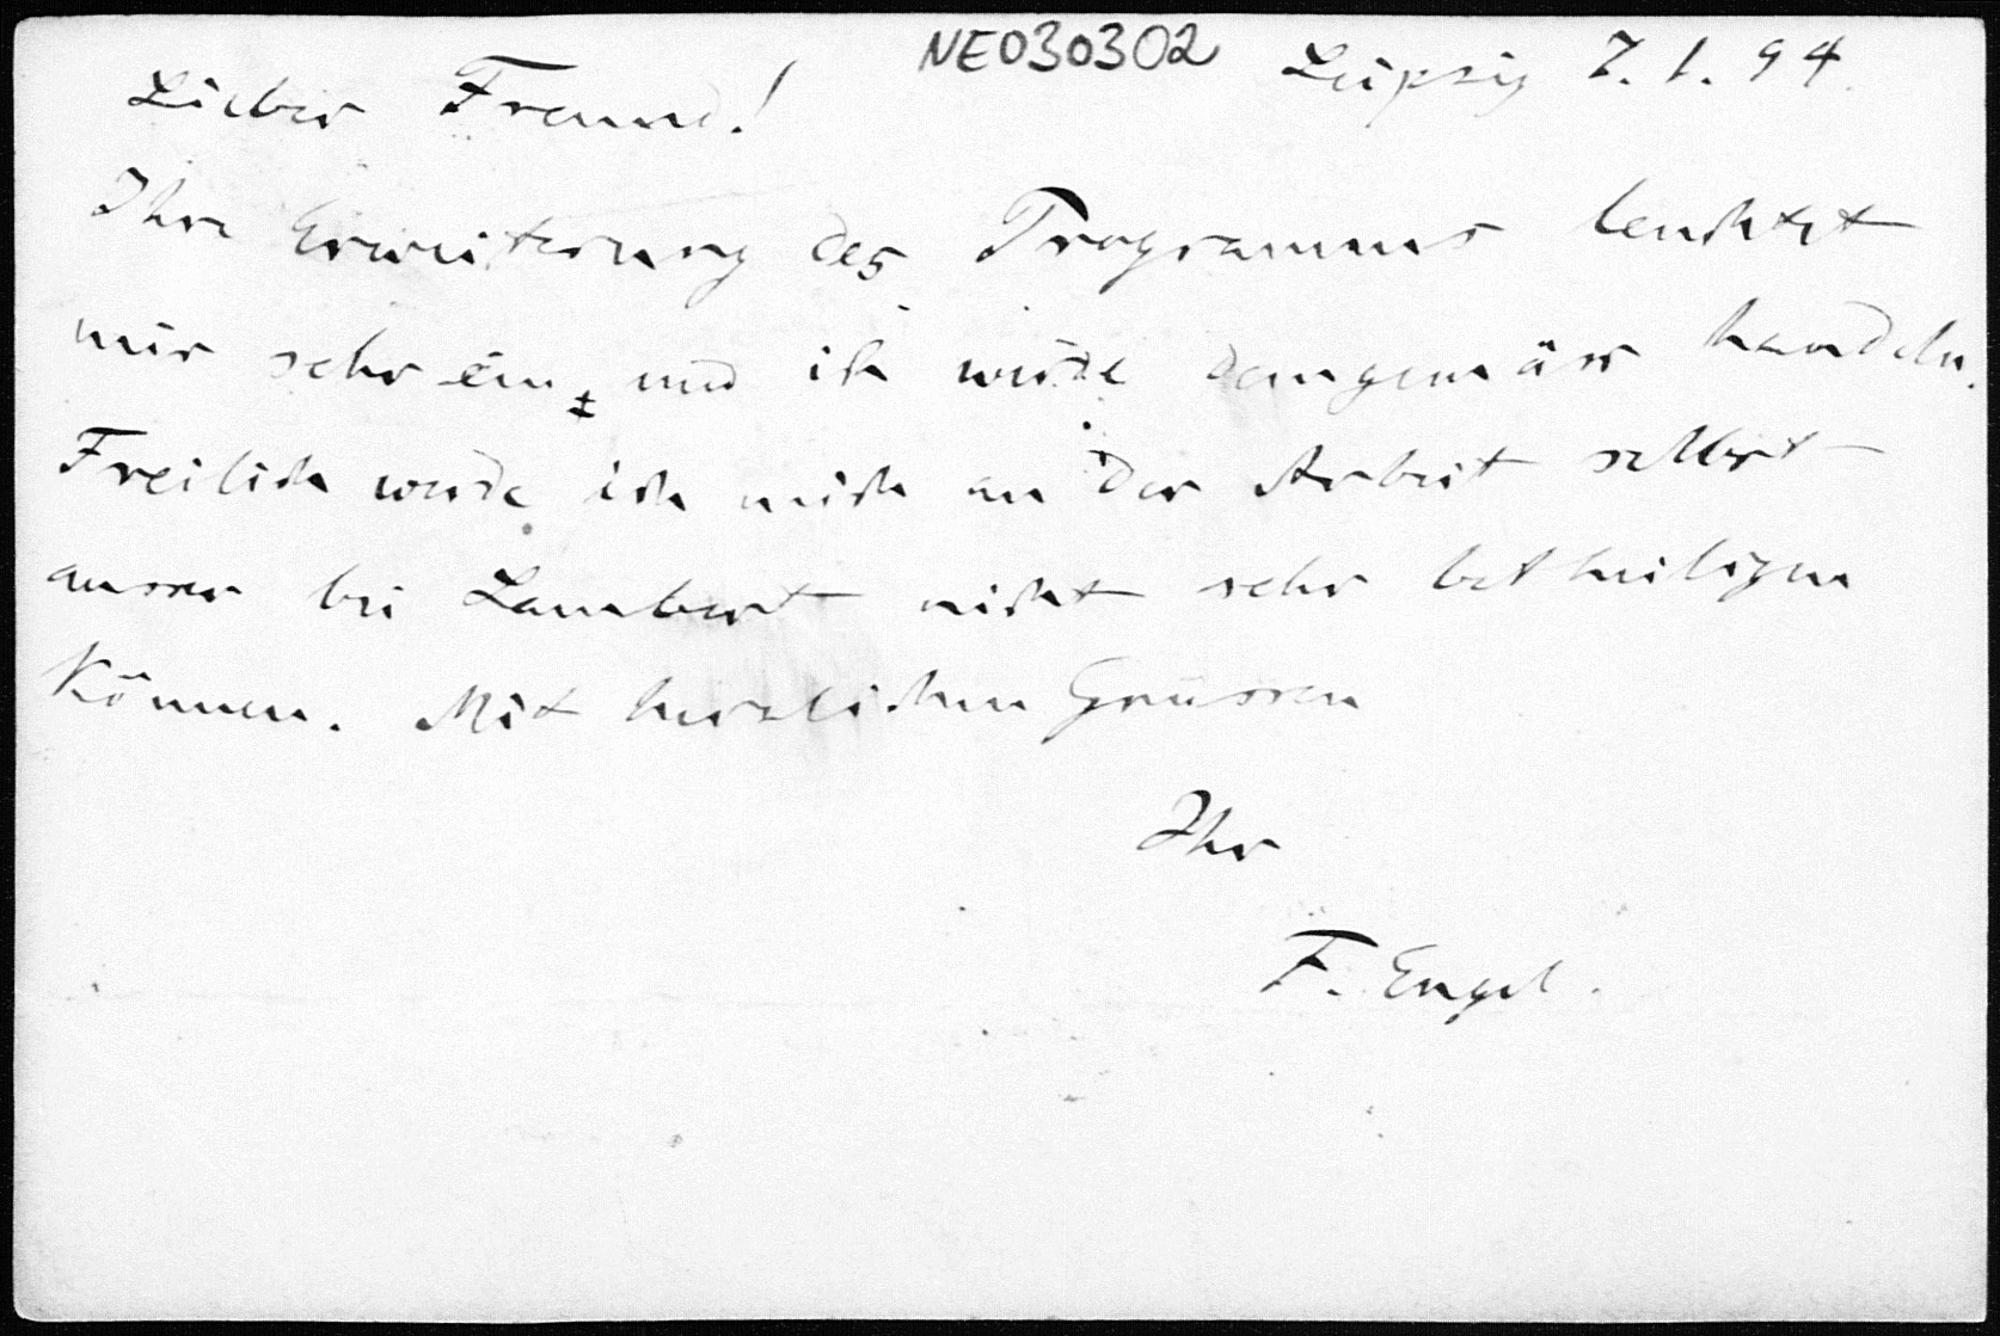 NE030302
Leipzig 7. 1. 94.
Lieber Freund!
Ihre Erweiterung des Programms leuchtet
mir sehr ein, und ich werde demgemäss handeln.
Freilich werde ich mich an der Arbeit selbst
ausser bei Lambert nicht sehr betheiligen
können. Mit herzlichen Grüssen
Ihr
F. Engel.